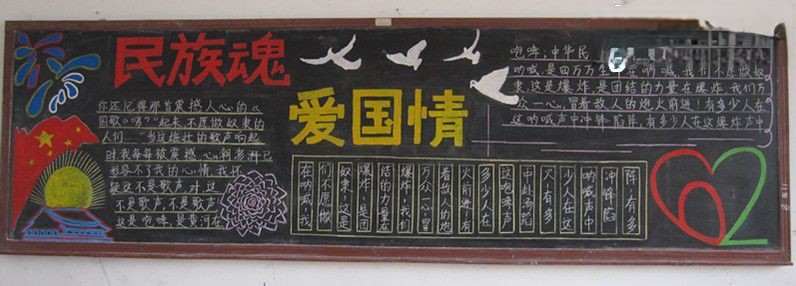 民族魂
爱国情
你还记得那首震撼人心的《
国歌》吗?"起来不愿做奴隶的
人们……"当这雄壮的歌声响起
时,我每每被震撼,心利澎湃已
形容不了我的心情,我怀
疑这不是歌声,对,这
不是歌声,不是歌声,
这是咆哮,是黄河在
咆哮,中华民
呐喊,是四万万生在呐喊,我们不愿做奴
隶,这是爆炸,是团结的力量在爆炸,我们万
众一心,冒着敌人的炮火前进!有多少人在
这呐喊声中冲锋陷阵,有多少人在这爆炸声中
在呐喊,我
们不愿做
奴隶!这是
爆炸,是团
结的力量在
爆炸,我们
万众一心冒
着敌人的炮
火前进!有
多少人在
这咆哮声
中赴汤蹈
火,有多
少人在这
呐喊声中
冲锋陷
阵,有多
62